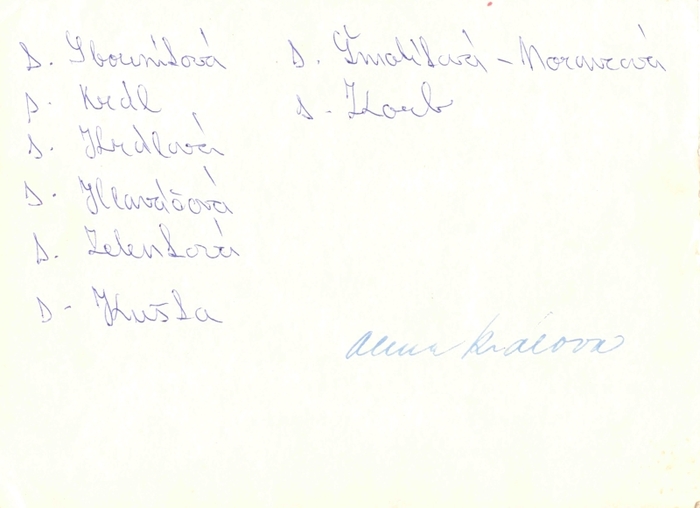 s. Sbouníková
s. Krdl
s. Krdlová
s. Hlaváčová
s. Zelenková
s. Kuška
s. Šmolíková - Moravcová
s. Korb
Králová